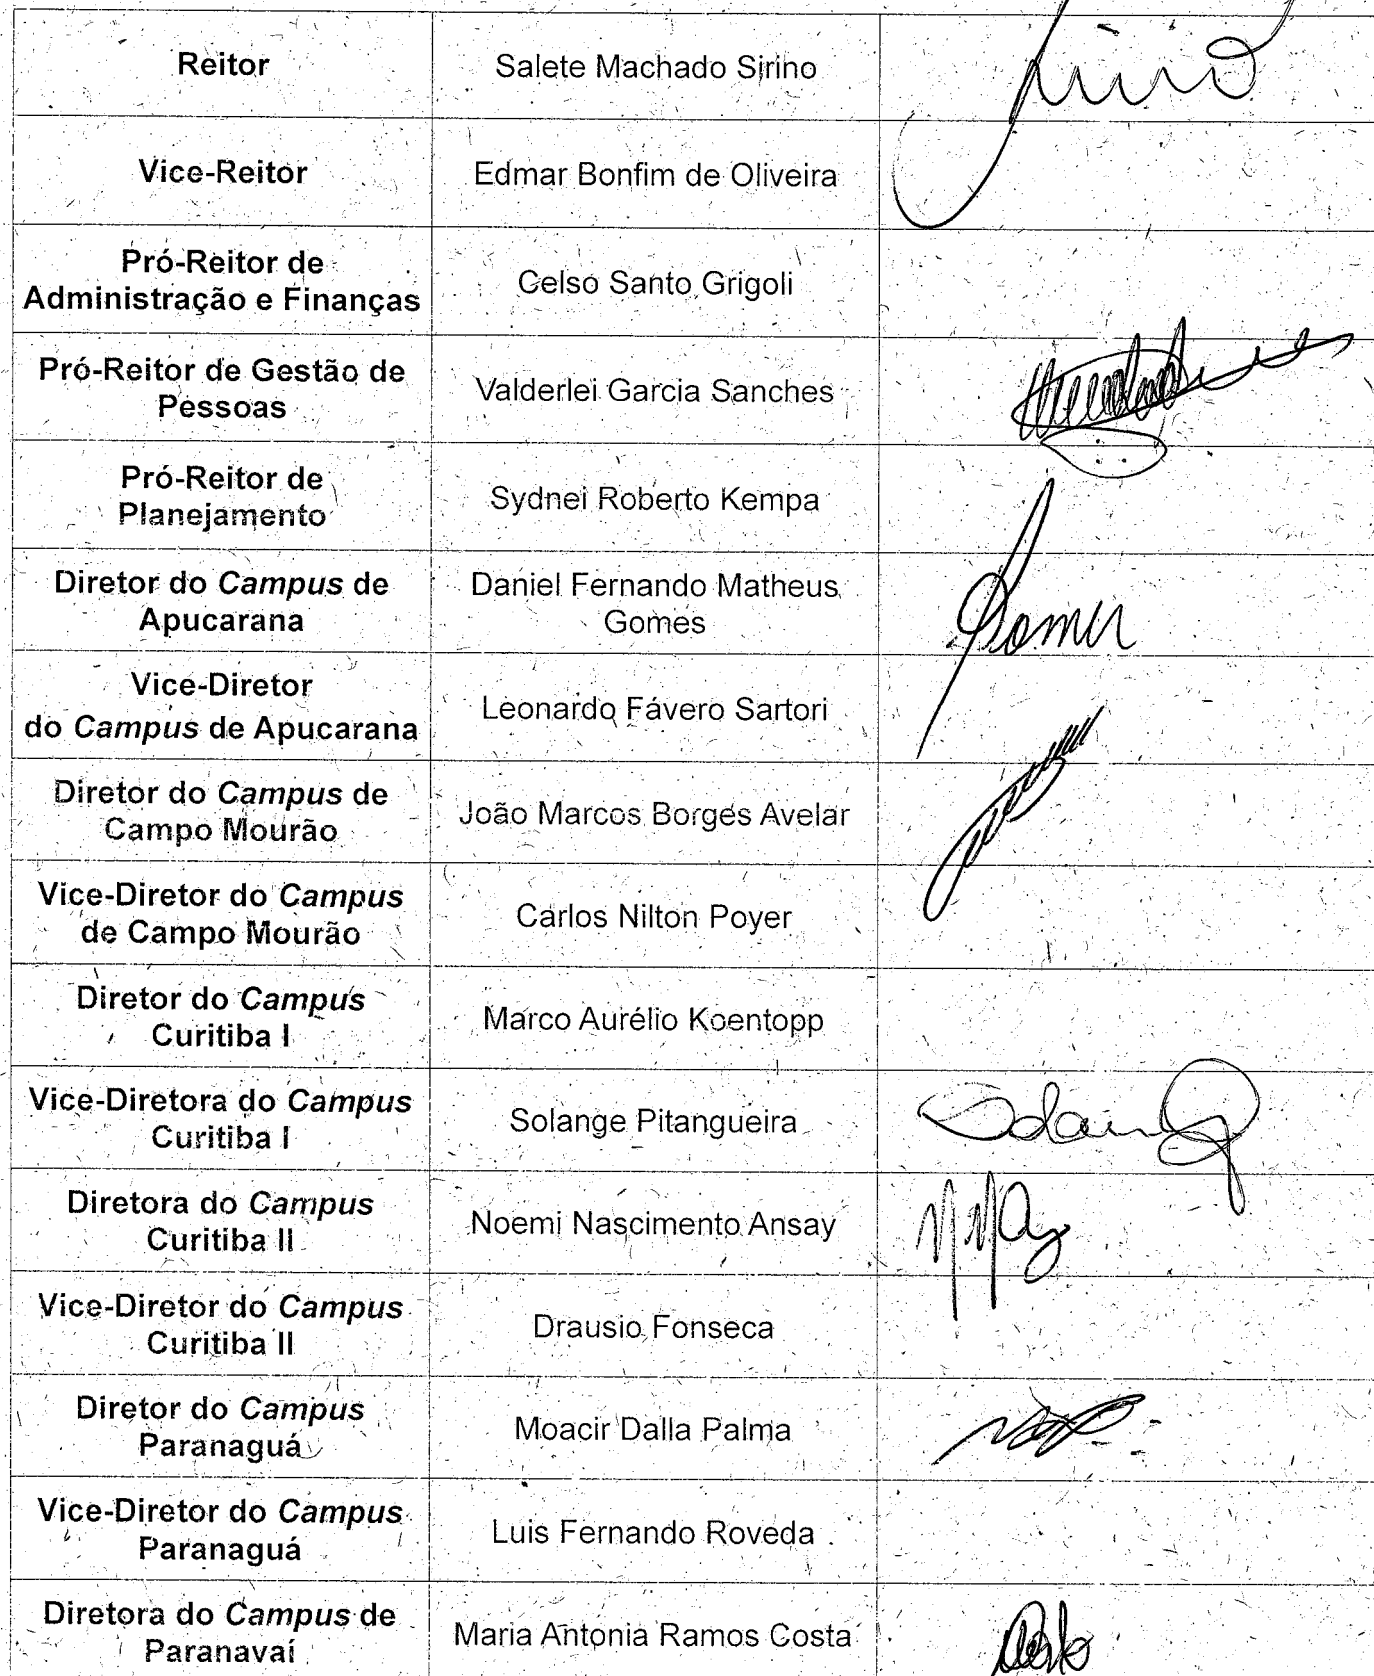 Reitor
Salete Machado Sirino
Vice-Reitor
Edmar Bonfim de Oliveira
Pró-Reitor de
Administração e Finanças
Celso Santo Grigoli
Pró-Reitor de Gestão de
Pessoas
Valderlei Garcia Sanches
Pró-Reitor de
Planejamento
Sydnei Roberto Kempa
Diretor do Campus de
Apucarana
Daniel Fernando Matheus
Gomes
Vice-Diretor
do Campus de Apucarana
Leonardo Fávero Sartori
Diretor do Campus de
Campo Mourão
João Marcos Borges Avelar
Vice-Diretor do Campus
de Campo Mourão
Carlos Nilton Poyer
Diretor do Campus
Curitiba I
Marco Aurélio Koentopp
Vice-Diretora do Campus
Curitiba I
Solange Pitangueira
Diretora do Campus
Curitiba II
Noemi Nascimento Ansay
Vice-Diretor do Campus
Curitiba II
Drausio Fonseca
Diretor do Campus
Paranaguá
Moacir Dalla Palma
Vice-Diretor do Campus
Paranaguá
Luis Fernando Roveda
Diretora do Campus de
Paranavaí
Maria Antonia Ramos Costa